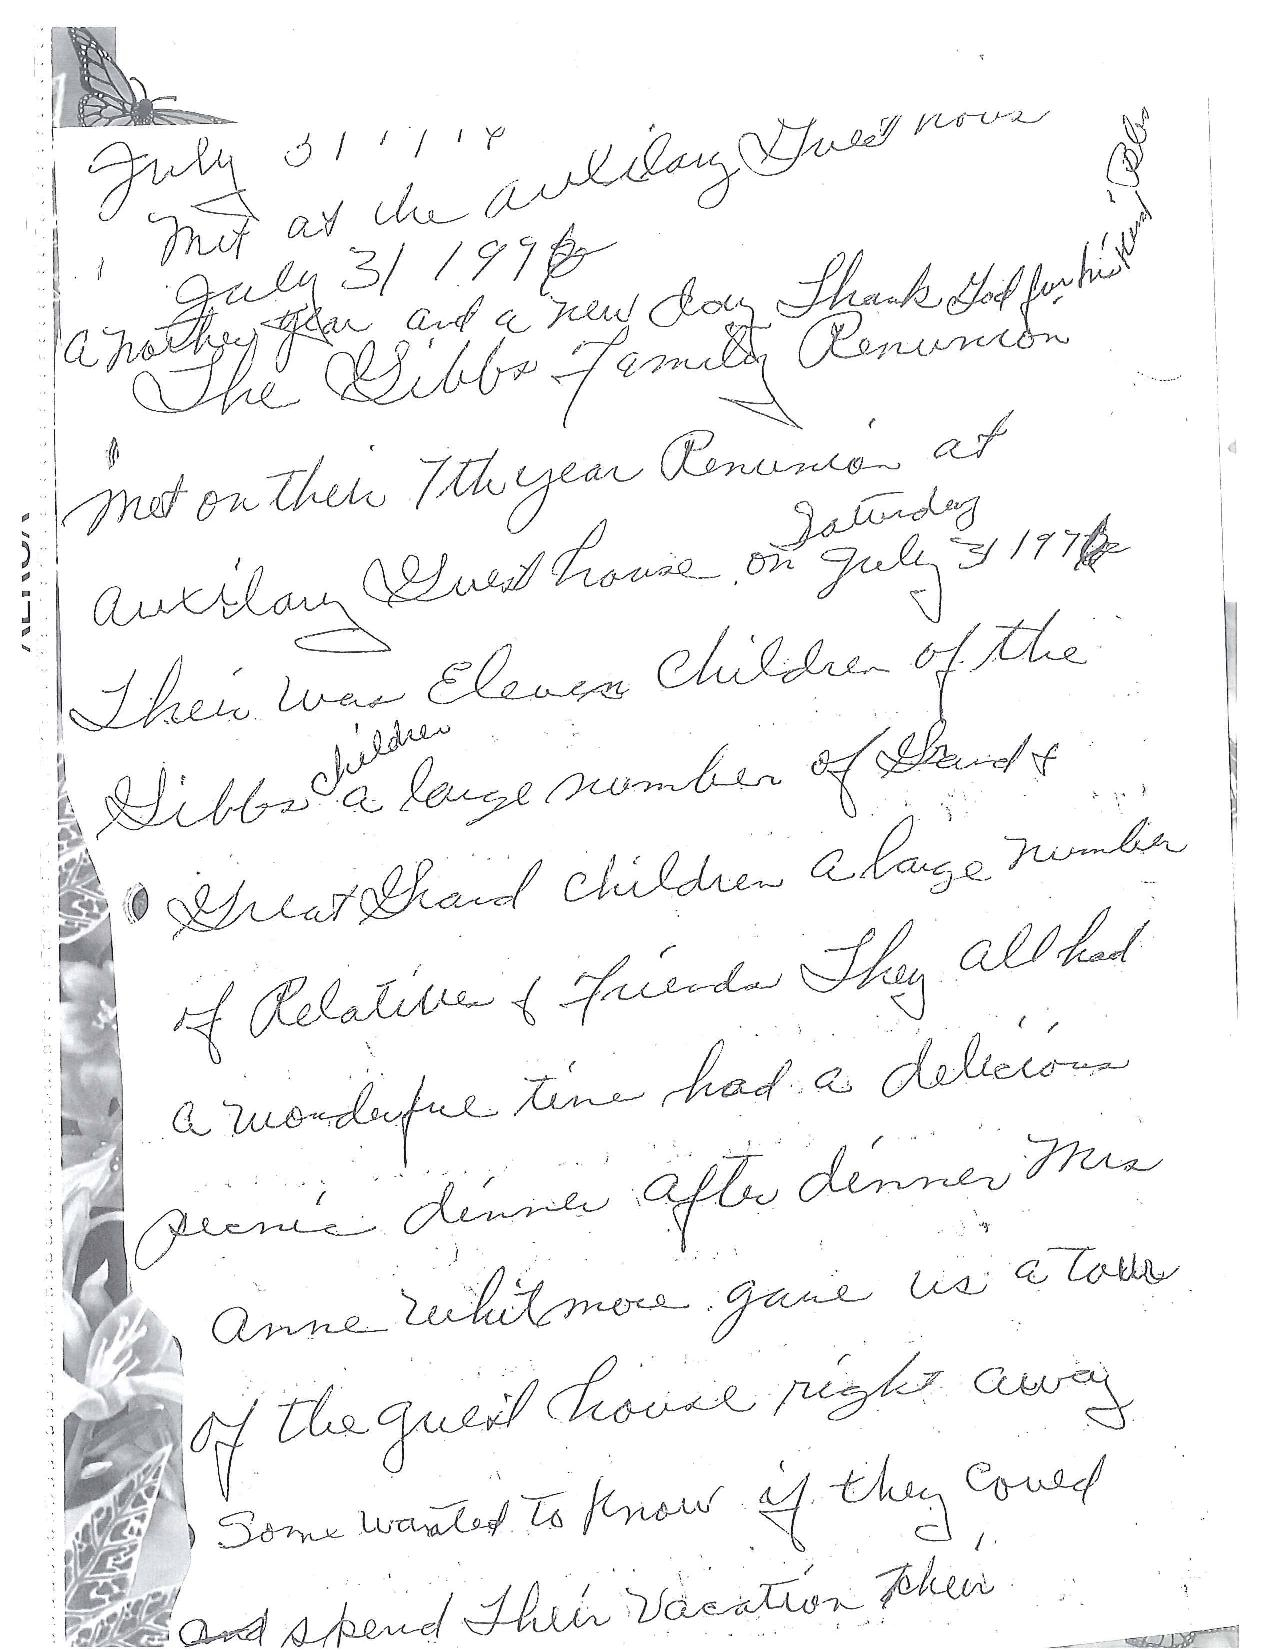 July 31
Met at the auxilary Guest hous
July 31 1976
another year and a new day Thank God for his
The Gibbs Family Renunion
Met on their 7th year Renunion at
Saturday
auxilary Guest house on July 31 1976
Their was Eleven Children of the
children
Gibbs a large number of Grand &
Great Grand children a large number
of Relative & Friends They all had
a wonderful time had a delicious
picnic dinner after dinner Mrs
Anne Whitmore gave us a tour
of the guest house right away
Some wanted to know if they could
and spend Their Vacation their